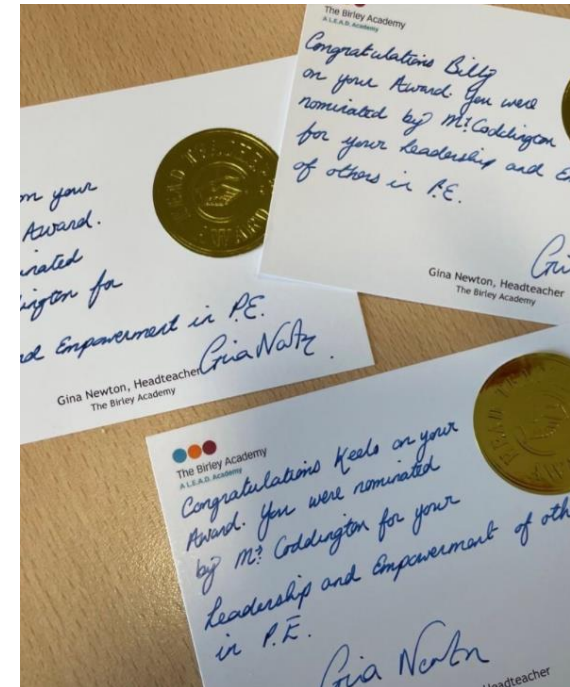 The Birley Academy
A L.E.A.D. Academy
Congratulations Billy
on your Award. You were
nominated by Mr. Coddington
for your Leadership and E
of others in P.E.
Gina Newton, Headteacher
The Birley Academy
on your
Award.
nated
ington for
nd Empowerment in P.E.
Gina Newton
Gina Newton, Headteacher
The Birley Academy
HEADTEACHER
AWARD
The Birley Academy
A L.E.A.D. Academy
Congratulations Keelo on your
Award. You were nominated
by Mr. Coddington for your
Leadership and Empowerment of oth
in P.E.
Gina Newton
eadteacher